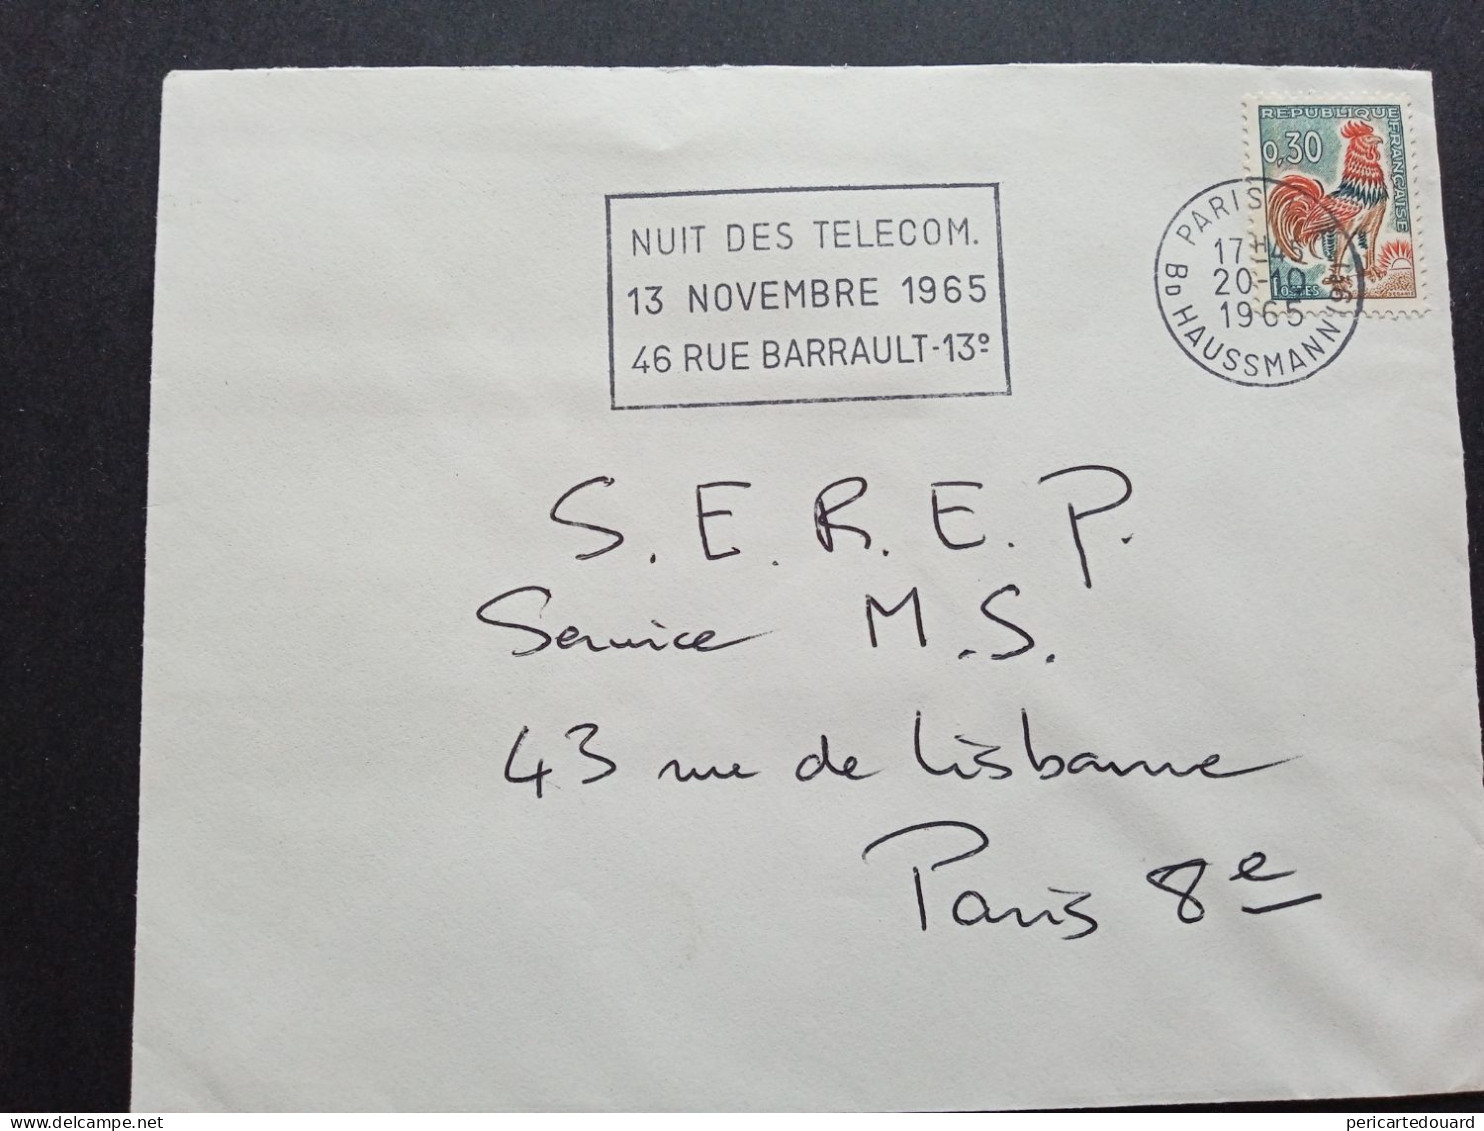 REPUBLIQUE FRANÇAISE
0,30
POSTES
PARIS
17H45
20-10
1965
BD HAUSSMANN
NUIT DES TELECOM.
13 NOVEMBRE 1965
46 RUE BARRAULT-13º
S.E.R.E.P.
Service M.S.
43 rue de Lisbonne
Paris 8e
delcampe.net
pericartedouard